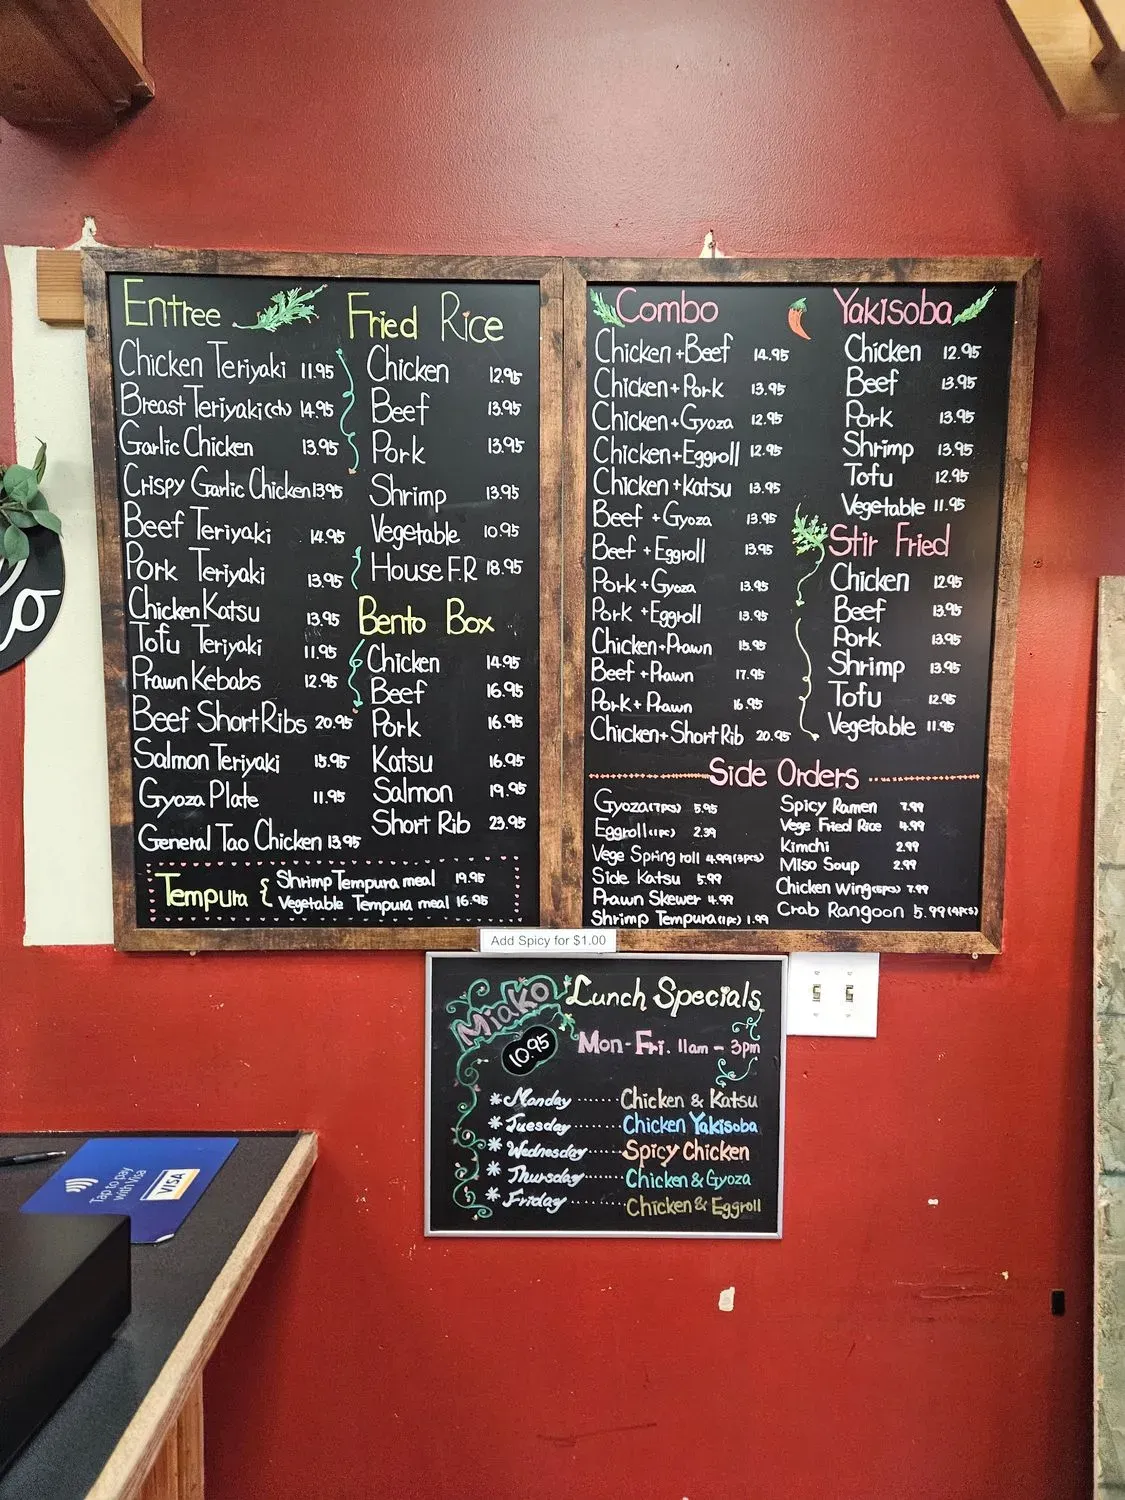 Entree
Chicken Teriyaki 11.95
Breast Teriyaki (ch) 14.95
Garlic Chicken 13.95
Crispy Garlic Chicken 13.95
Beef Teriyaki 14.95
Pork Teriyaki 13.95
Chicken Katsu 13.95
Tofu Teriyaki 11.95
Prawn Kebabs 12.95
Beef Short Ribs 20.95
Salmon Teriyaki 15.95
Gyoza Plate 11.95
General Tao Chicken 13.95
Fried Rice
Chicken 12.95
Beef 13.95
Pork 13.95
Shrimp 13.95
Vegetable 10.95
House F.R 18.95
Bento Box
Chicken 14.95
Beef 16.95
Pork 16.95
Katsu 16.95
Salmon 19.95
Short Rib 23.95
Tempura { Shrimp Tempura meal 19.95
Vegetable Tempura meal 16.95
Combo
Chicken + Beef 14.95
Chicken + Pork 13.95
Chicken + Gyoza 12.95
Chicken + Eggroll 12.95
Chicken + Katsu 13.95
Beef + Gyoza 13.95
Beef + Eggroll 13.95
Pork + Gyoza 13.95
Pork + Eggroll 13.95
Chicken + Prawn 15.95
Beef + Prawn 17.95
Pork + Prawn 16.95
Chicken + Short Rib 20.95
Yakisoba
Chicken 12.95
Beef 13.95
Pork 13.95
Shrimp 13.95
Tofu 12.95
Vegetable 11.95
Stir Fried
Chicken 12.95
Beef 13.95
Pork 13.95
Shrimp 13.95
Tofu 12.95
Vegetable 11.95
Side Orders
Gyoza (7pcs) 5.95
Eggroll (1pc) 2.39
Vege Spring roll 4.99 (3pcs)
Side Katsu 5.99
Prawn Skewer 4.99
Shrimp Tempura (1pc) 1.99
Spicy Ramen 7.99
Vege Fried Rice 4.99
Kimchi 2.99
Miso Soup 2.99
Chicken Wing (5pcs) 7.99
Crab Rangoon 5.99 (4pcs)
Add Spicy for $1.00
Miako
10.95
Lunch Specials
Mon-Fri. 11am - 3pm
* Monday ...... Chicken & Katsu
* Tuesday ...... Chicken Yakisoba
* Wednesday ..... Spicy Chicken
* Thursday ...... Chicken & Gyoza
* Friday ........ Chicken & Eggroll
Tap to pay
with Visa
VISA